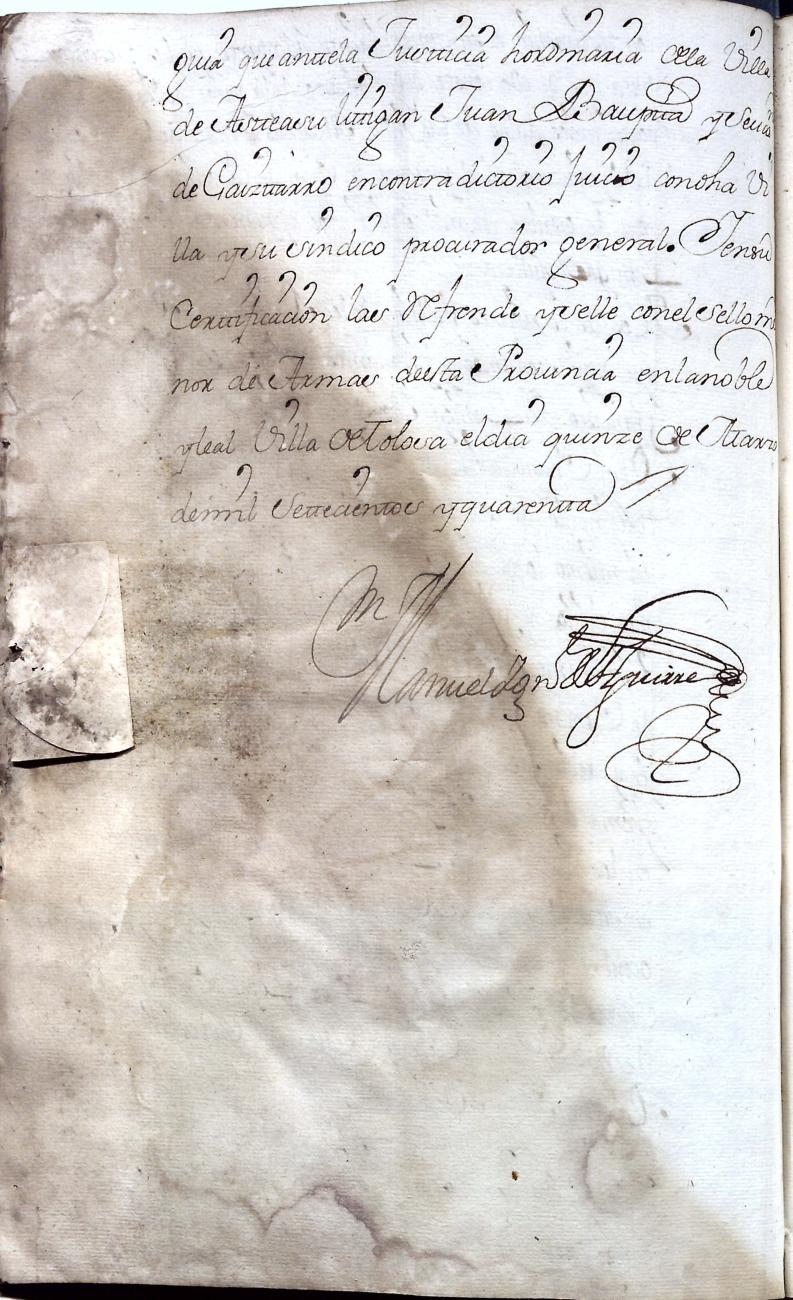 guia que antte la Justticia hordinaria de la Villa
de Astteasu littigan Juan Baupttã y
de Gaizttarro en contradictorio Juicio con dha Vi
lla y su síndico procurador general. Y en su
Certtificacion las Refrende y selle con el sello me
nor de Armas de estta Provincia en la noble
y leal Villa de Tolosa el dia quinze de Marzo
de mil Settecienttos y quarentta
Manuel Ign de Aguirre